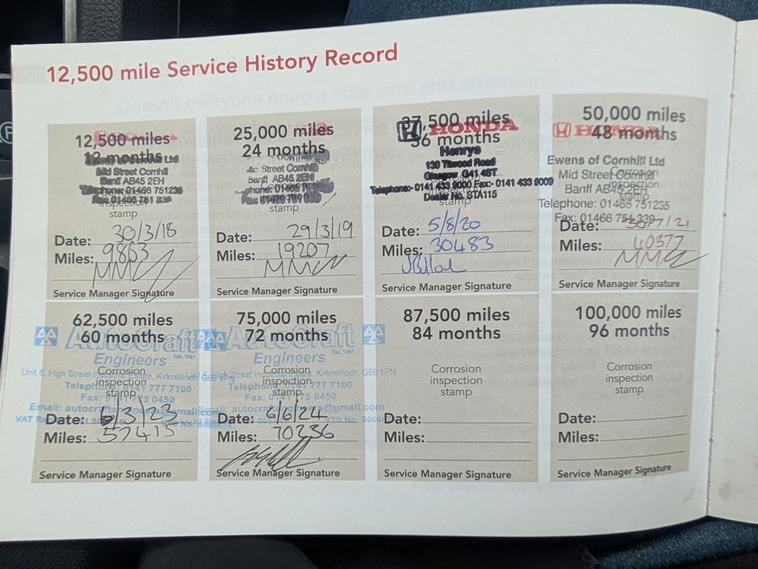 12,500 mile Service History Record
12,500 miles
12 months
Mid Street Cornhill
Banff AB45 2EH
Telephone: 01466 751235
Fax: 01466 751 339
inspection
stamp
Date: 30/3/18
Miles: 9863
Service Manager Signature
25,000 miles
24 months
Street Cornhill
Banff AB45 2EH
stamp
Date: 29/3/19
Miles: 19207
Service Manager Signature
37,500 miles
36 months
HONDA
Henrys
130 Titwood Road
Glasgow G41 4ST
Telephone: 0141 433 9000 Fax: 0141 433 9009
Dealer No. STA115
Date: 5/8/20
Miles: 30483
Service Manager Signature
50,000 miles
48 months
HONDA
Ewens of Cornhill Ltd
Mid Street Cornhill
Banff AB45 2EH
Telephone: 01466 751235
Fax: 01466 751 339
Date: 30/7/21
Miles: 40377
Service Manager Signature
62,500 miles
60 months
AA AutoCraft
Engineers
Unit 5, High Street Industrial Estate, Kirkintilloch, G66 1PN
Corrosion
inspection
stamp
Telephone: 0141 777 7100
Date: 5/3/23
Miles: 57415
Service Manager Signature
75,000 miles
72 months
AA AutoCraft
Engineers
Est. 1981
Street Industrial Estate, Kirkintilloch, G66 1PN
Corrosion
inspection
stamp
Telephone: 0141 777 7100
Date: 6/6/24
Miles: 70236
Service Manager Signature
87,500 miles
84 months
Corrosion
inspection
stamp
Date:
Miles:
Service Manager Signature
100,000 miles
96 months
Corrosion
inspection
stamp
Date:
Miles:
Service Manager Signature